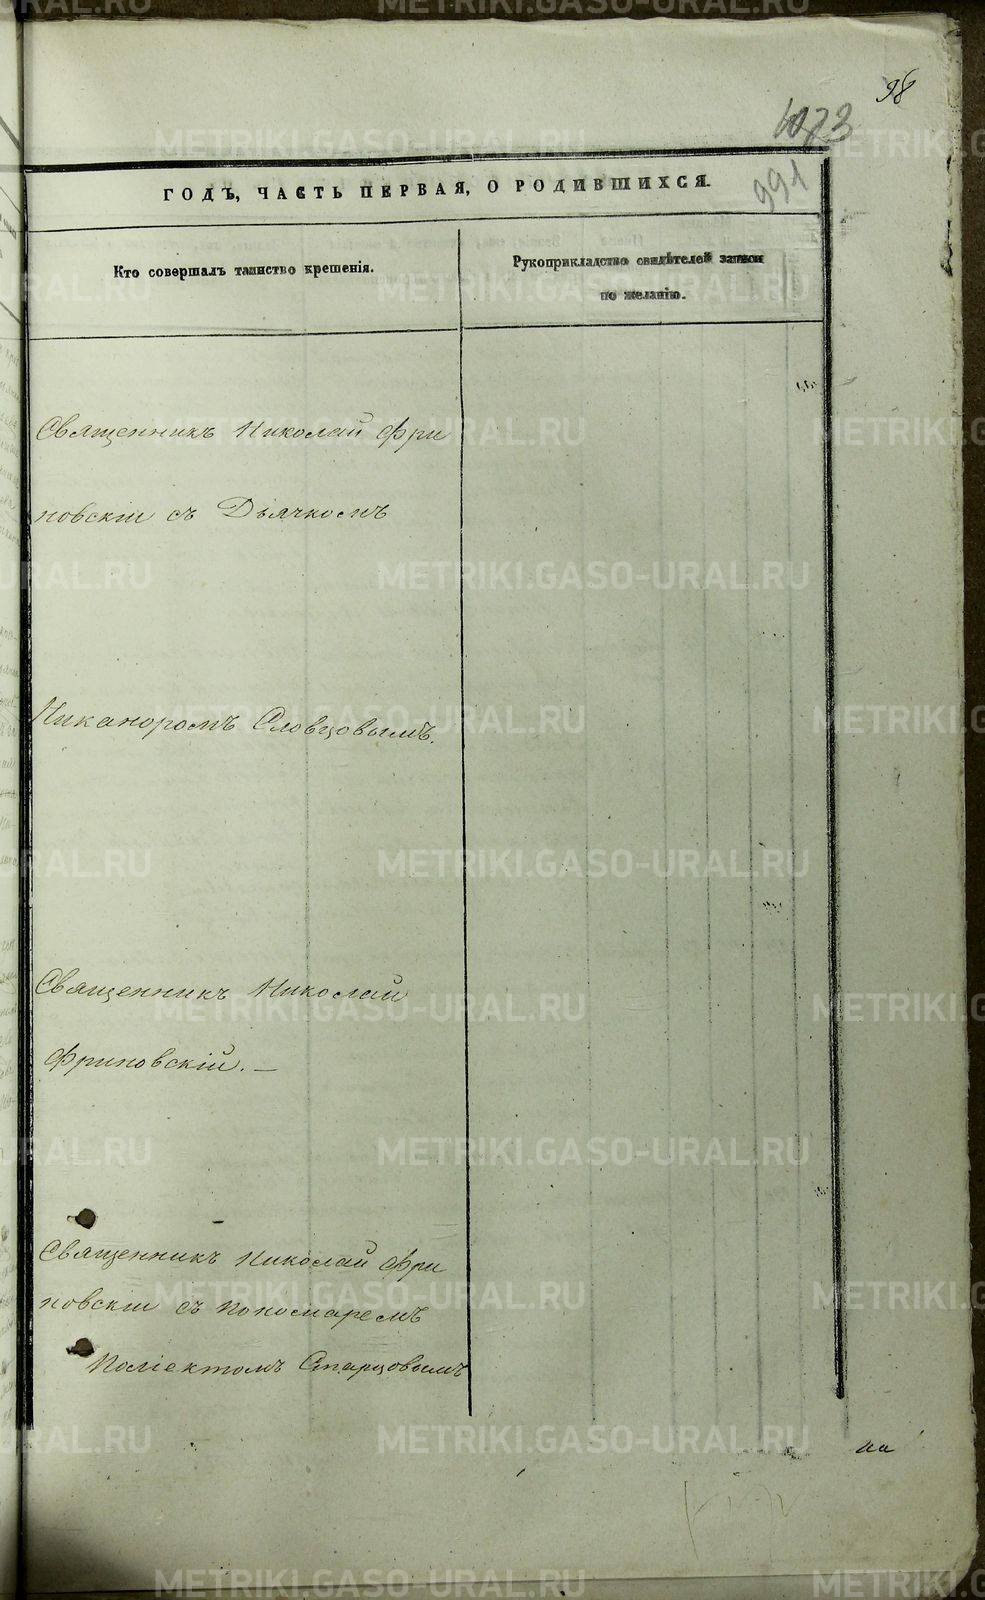 98
1073
991
ГОДЪ, ЧАСТЬ ПЕРВАЯ, О РОДИВШИХСЯ.
Кто совершалъ таинство крещенія.
Рукоприкладство свидѣтелей записи
по желанію.
Священникъ Николай Фри
новскій съ Дьячкомъ
Никаноромъ Словцовымъ.
Священникъ Николай
Фриновскій. —
Священникъ Николай Фри
новскій съ пономаремъ
Поліектомъ Старцовымъ
METRIKI.GASO-URAL.RU